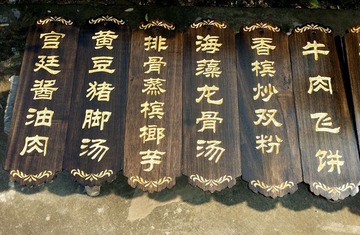 宫廷酱油肉
黄豆猪脚汤
排骨蒸槟榔芋
海藻龙骨汤
香槟炒双粉
牛肉飞饼